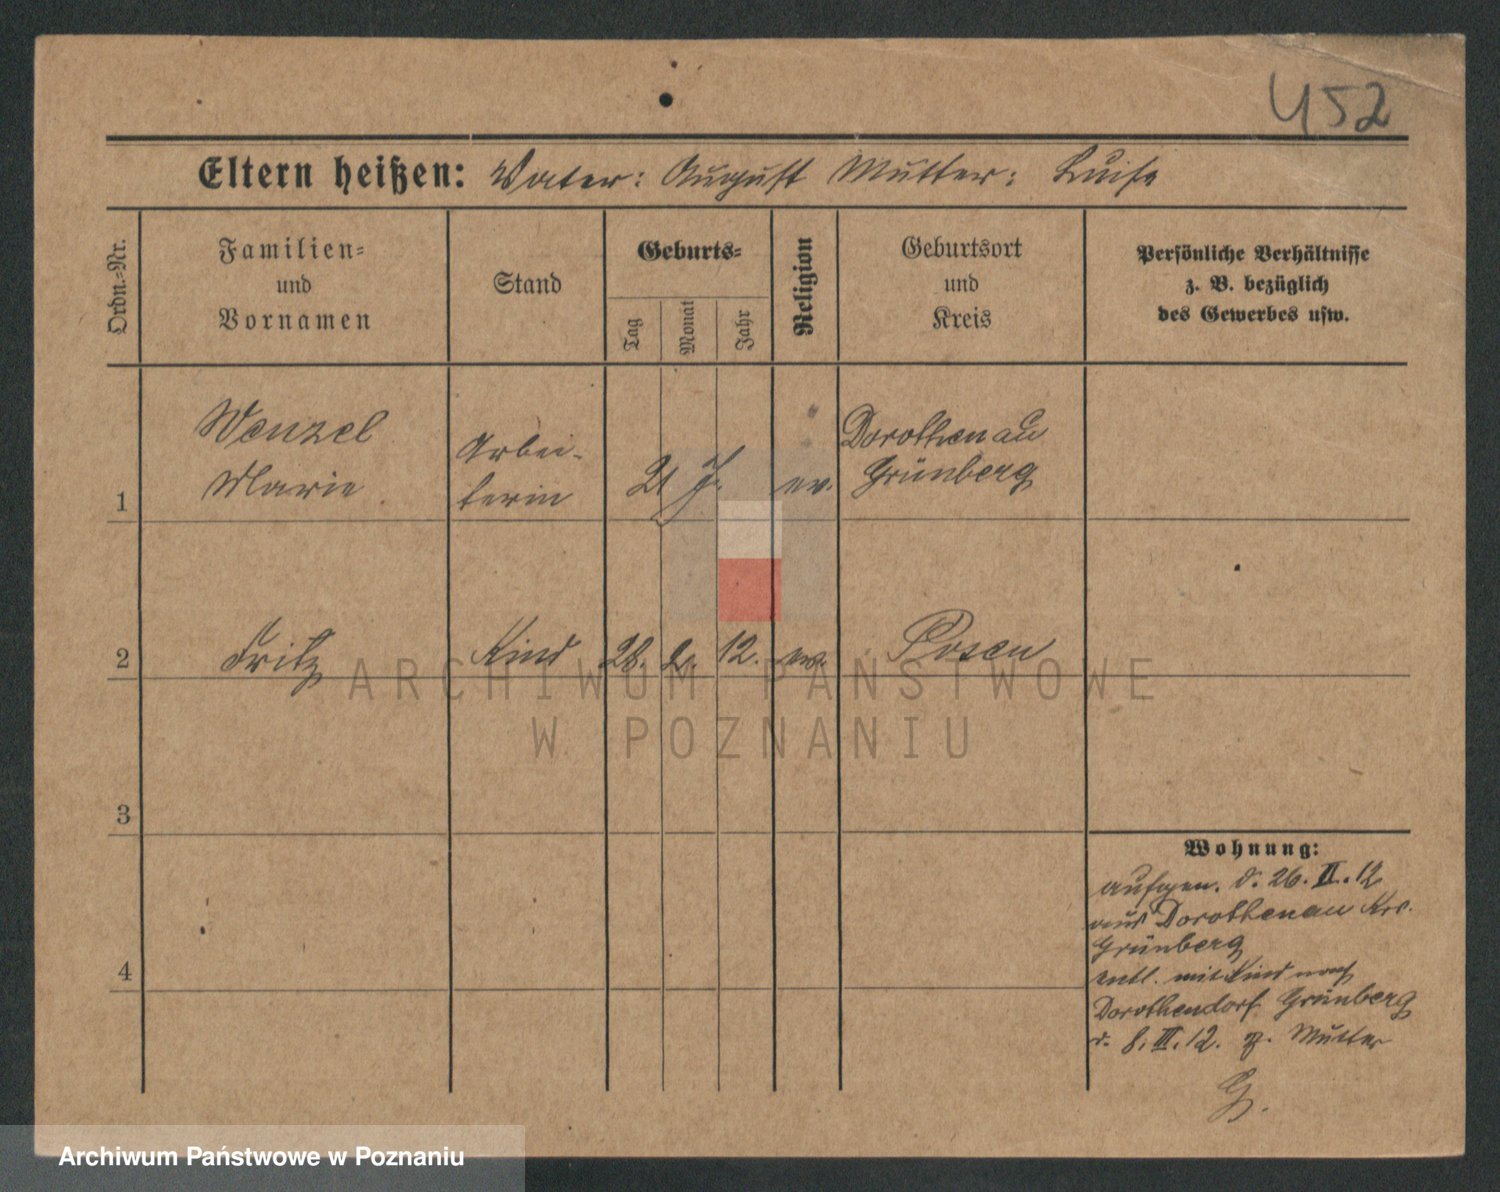 452
Eltern heißen: Vater: August Mutter: Luise
Ordn.-Nr.
Familien-
und
Vornamen
Stand
Geburts-
Tag
Monat
Jahr
Religion
Geburtsort
und
Kreis
Persönliche Verhältnisse
z. B. bezüglich
des Gewerbes usw.
1
Wenzel
Marie
Arbei-
terin
21 J.
ev.
Dorothenau
Grünberg
2
Fritz
Kind
28. 2. 12.
ev.
Posen
3
4
Wohnung:
aufgen. d. 26. II. 12
aus Dorothenau Krs.
Grünberg
entl. mit Kind nach
Dorothendorf Grünberg
d. 8. III. 12. z. Mutter
G.
ARCHIWUM PAŃSTWOWE
W POZNANIU
Archiwum Państwowe w Poznaniu